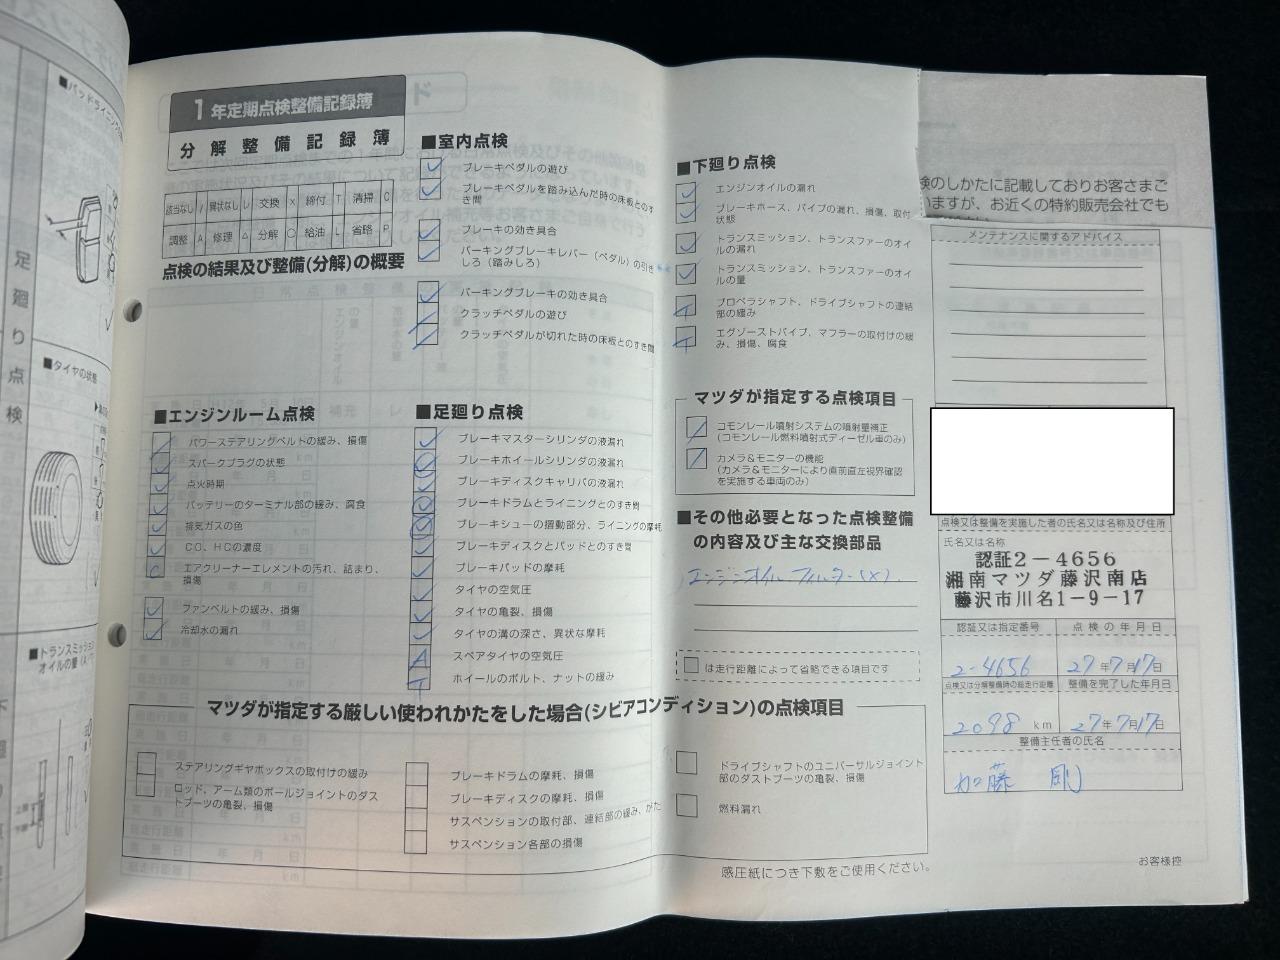 1年定期点検整備記録簿
分解整備記録簿
該当なし / 異状なし レ 交換 × 締付 T 清掃 C
調整 A 修理 △ 分解 ○ 給油 L 省略 P
点検の結果及び整備(分解)の概要
■エンジンルーム点検
パワーステアリングベルトの緩み、損傷
スパークプラグの状態
点火時期
バッテリーのターミナル部の緩み、腐食
排気ガスの色
CO、HCの濃度
エアクリーナーエレメントの汚れ、詰まり、
損傷
ファンベルトの緩み、損傷
冷却水の漏れ
■室内点検
ブレーキペダルの遊び
ブレーキペダルを踏み込んだ時の床板とのす
き間
ブレーキの効き具合
パーキングブレーキレバー(ペダル)の引き
しろ(踏みしろ)
パーキングブレーキの効き具合
クラッチペダルの遊び
クラッチペダルが切れた時の床板とのすき間
■足廻り点検
ブレーキマスターシリンダの液漏れ
ブレーキホイールシリンダの液漏れ
ブレーキディスクキャリパの液漏れ
ブレーキドラムとライニングとのすき間
ブレーキシューの摺動部分、ライニングの摩耗
ブレーキディスクとパッドとのすき間
ブレーキパッドの摩耗
タイヤの空気圧
タイヤの亀裂、損傷
タイヤの溝の深さ、異状な摩耗
スペアタイヤの空気圧
ホイールのボルト、ナットの緩み
■下廻り点検
エンジンオイルの漏れ
ブレーキホース、パイプの漏れ、損傷、取付
状態
トランスミッション、トランスファーのオイ
ルの漏れ
トランスミッション、トランスファーのオイ
ルの量
プロペラシャフト、ドライブシャフトの連結
部の緩み
エグゾーストパイプ、マフラーの取付けの緩
み、損傷、腐食
マツダが指定する点検項目
コモンレール噴射システムの噴射量補正
(コモンレール燃料噴射式ディーゼル車のみ)
カメラ&モニターの機能
(カメラ&モニターにより直前直左視界確認
を実施する車両のみ)
■その他必要となった点検整備
の内容及び主な交換部品
エンジンオイル フィルター(×)
は走行距離によって省略できる項目です
マツダが指定する厳しい使われかたをした場合(シビアコンディション)の点検項目
ステアリングギヤボックスの取付けの緩み
ロッド、アーム類のボールジョイントのダス
トブーツの亀裂、損傷
ブレーキドラムの摩耗、損傷
ブレーキディスクの摩耗、損傷
サスペンションの取付部、連結部の緩み、がた
サスペンション各部の損傷
ドライブシャフトのユニバーサルジョイント
部のダストブーツの亀裂、損傷
燃料漏れ
感圧紙につき下敷をご使用ください。
検のしかたに記載しておりお客さまご
いますが、お近くの特約販売会社でも
メンテナンスに関するアドバイス
点検又は整備を実施した者の氏名又は名称及び住所
氏名又は名称
認証2-4656
湘南マツダ藤沢南店
藤沢市川名1-9-17
認証又は指定番号 点検の年月日
2-4656 27年7月17日
点検又は分解整備時の総走行距離 整備を完了した年月日
2098km 27年7月17日
整備主任者の氏名
加藤 剛
お客様控
足廻り点検
■タイヤの状態
■トランスミッション
オイルの量